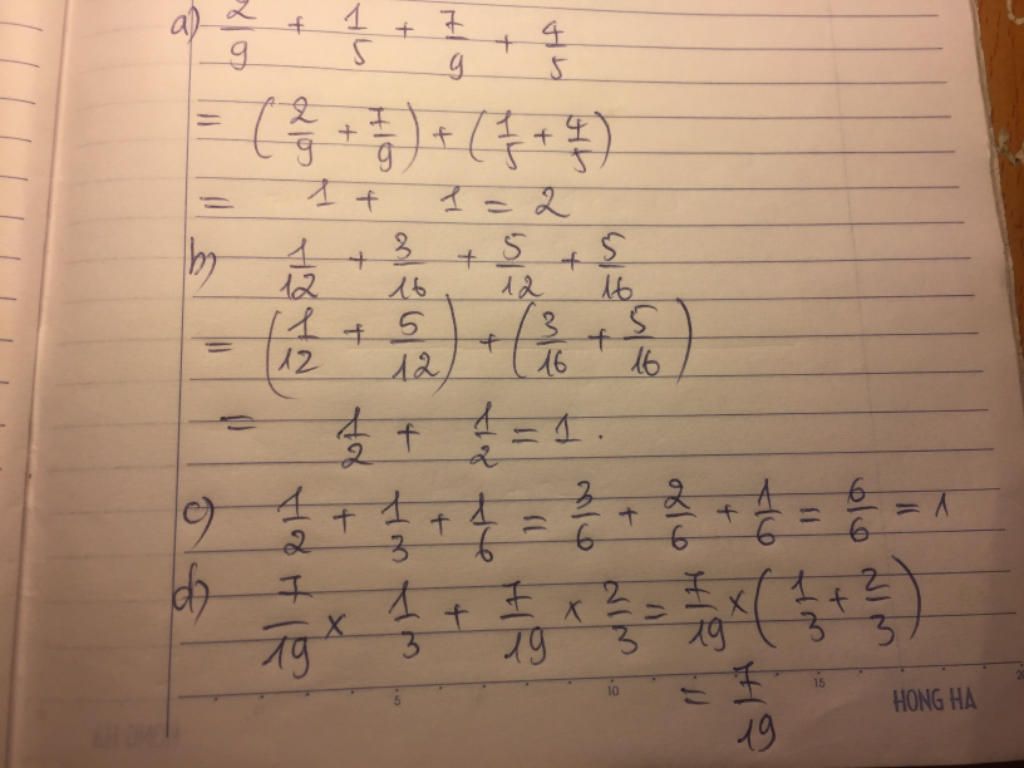 a) 2/9 + 1/5 + 7/9 + 4/5
= (2/9 + 7/9) + (1/5 + 4/5)
= 1 + 1 = 2
b) 1/12 + 3/16 + 5/12 + 5/16
= (1/12 + 5/12) + (3/16 + 5/16)
= 1/2 + 1/2 = 1.
c) 1/2 + 1/3 + 1/6 = 3/6 + 2/6 + 1/6 = 6/6 = 1
d) 7/19 × 1/3 + 7/19 × 2/3 = 7/19 × (1/3 + 2/3)
= 7/19
5 10 15 20
HONG HA